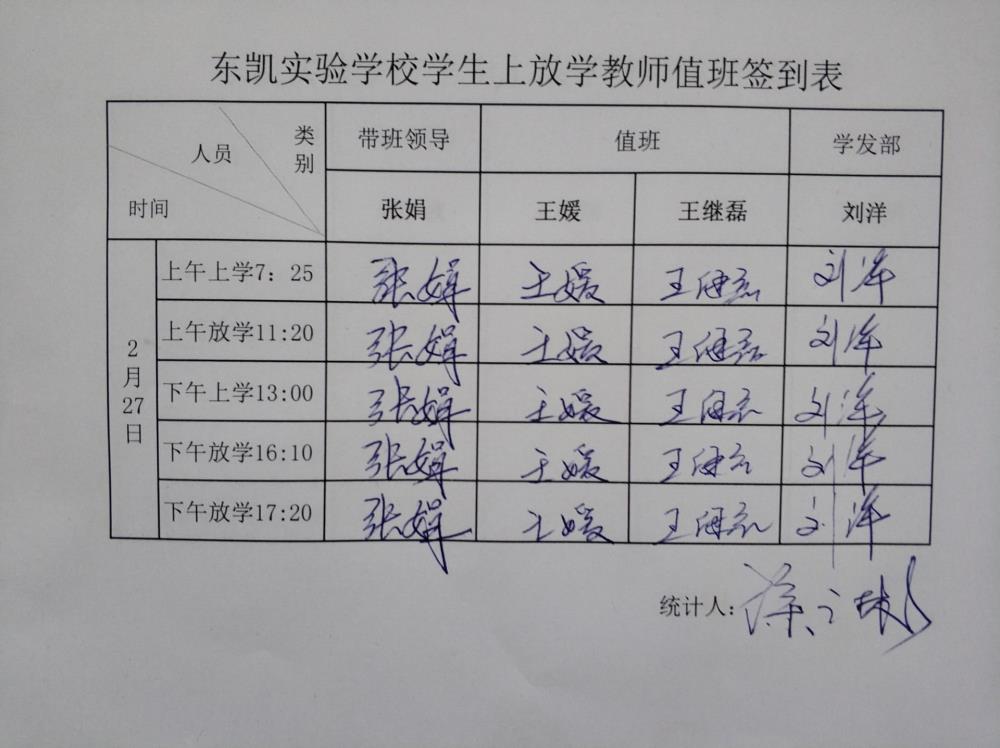 东凯实验学校学生上放学教师值班签到表
类别 人员 时间 带班领导 值班 学发部
张娟 王媛 王继磊 刘洋
2月27日
上午上学7：25 张娟 王媛 王继磊 刘洋
上午放学11:20 张娟 王媛 王继磊 刘洋
下午上学13:00 张娟 王媛 王继磊 刘洋
下午放学16:10 张娟 王媛 王继磊 刘洋
下午放学17:20 张娟 王媛 王继磊 刘洋
统计人：